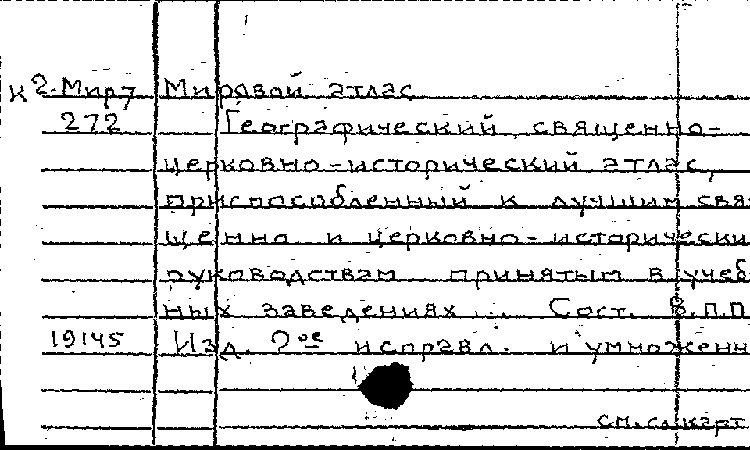 к 2-Мир7 Мировой атлас
272 Географический священно-
церковно-исторический атлас,
приспособленный к лучшим свя
щенно и церковно-исторически
руководствам принятым в учеб
ных заведениях... Сост. В.П.П
19145 Изд. 2ое исправл. и умноженн
см. сл. карт